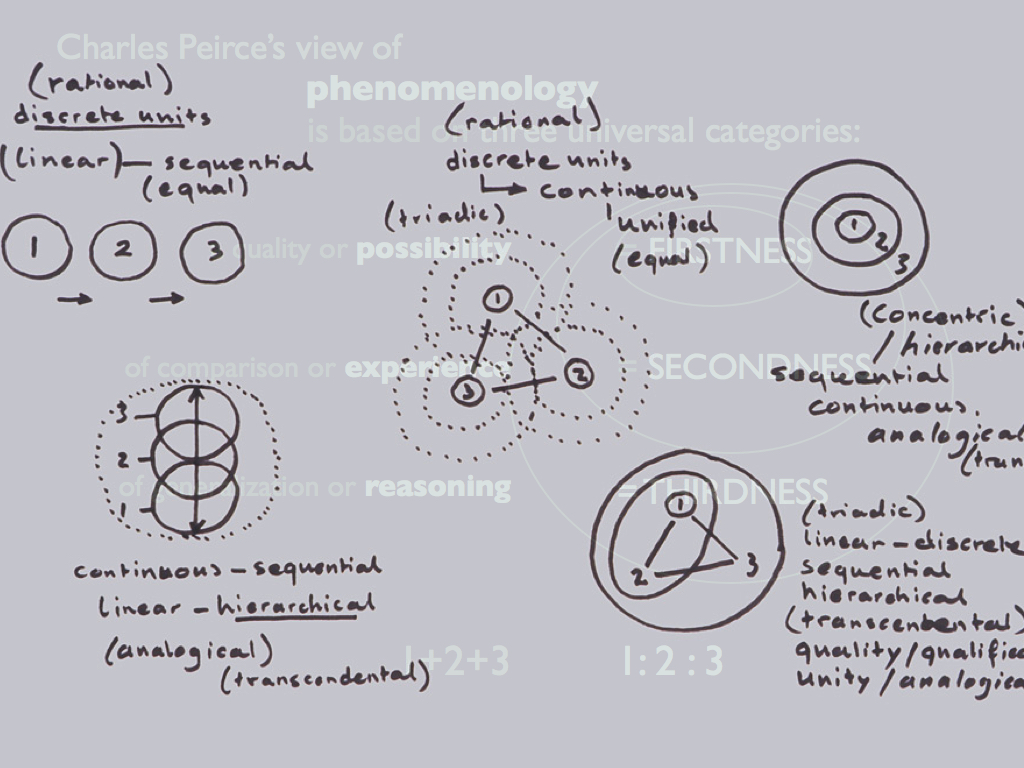 Charles Peirce's view of
phenomenology
is based on three universal categories:
quality or possibility = FIRSTNESS
of comparison or experience = SECONDNESS
of generalization or reasoning = THIRDNESS
1+2+3 1:2:3
(rational)
discrete units
(linear)— sequential
(equal)
1 2 3
(rational)
discrete units
continuous
unified
(equal)
(triadic)
1
2
3
1
2
3
(concentric)
/ hierarchi
sequential
continuous.
analogical
(tran
3
2
1
continuous - sequential
linear - hierarchical
(analogical)
(transcendental)
1
2 3
(triadic)
linear - discrete
sequential
hierarchical
(transcendental)
quality/qualifie
unity/analogica